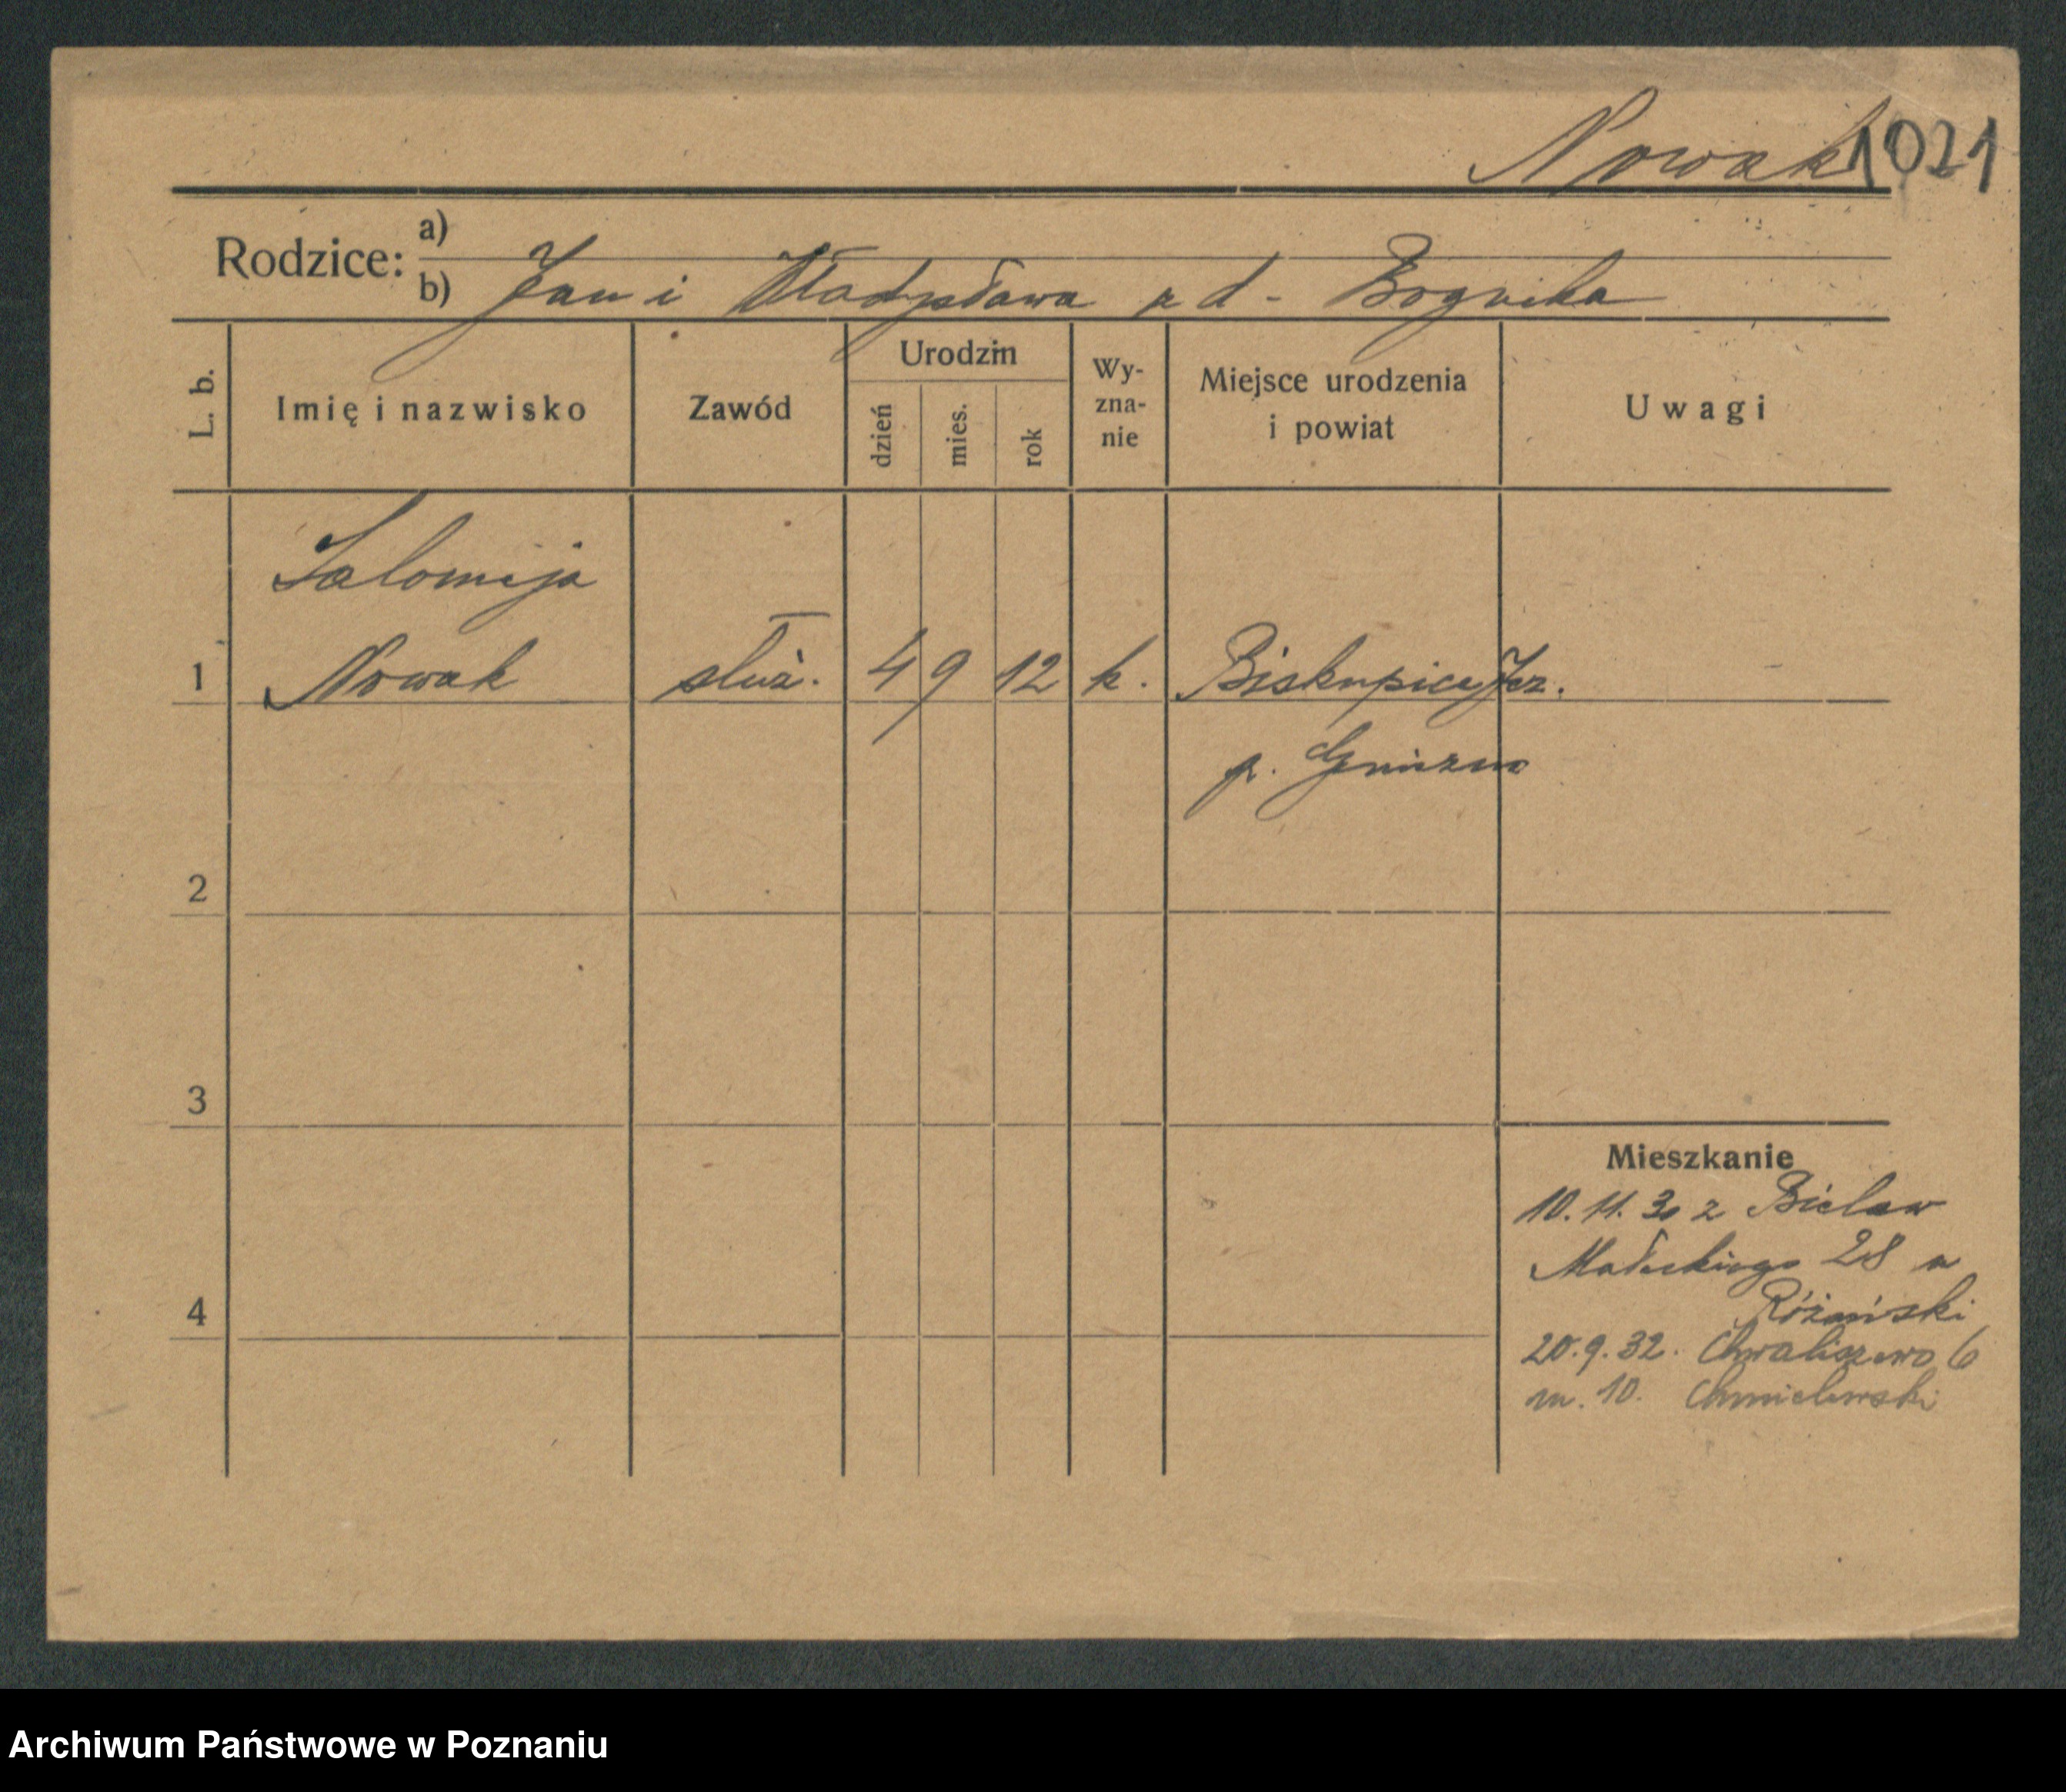 Nowak 1021
Rodzice: a)
b) Jan i Władysława z d - Bognika
L. b.
Imię i nazwisko
Zawód
Urodzin
dzień
mies.
rok
Wy-
zna-
nie
Miejsce urodzenia
i powiat
Uwagi
Salomeja
1 Nowak służ. 4 9 12 k. Biskupice Jez.
p. Gniezno
2
3
4
Mieszkanie
10.11.30 z Bielaw
Małeckiego 28 u
Różański
20.9.32. Chwaliszewo 6
m. 10. Chmielewski
Archiwum Państwowe w Poznaniu